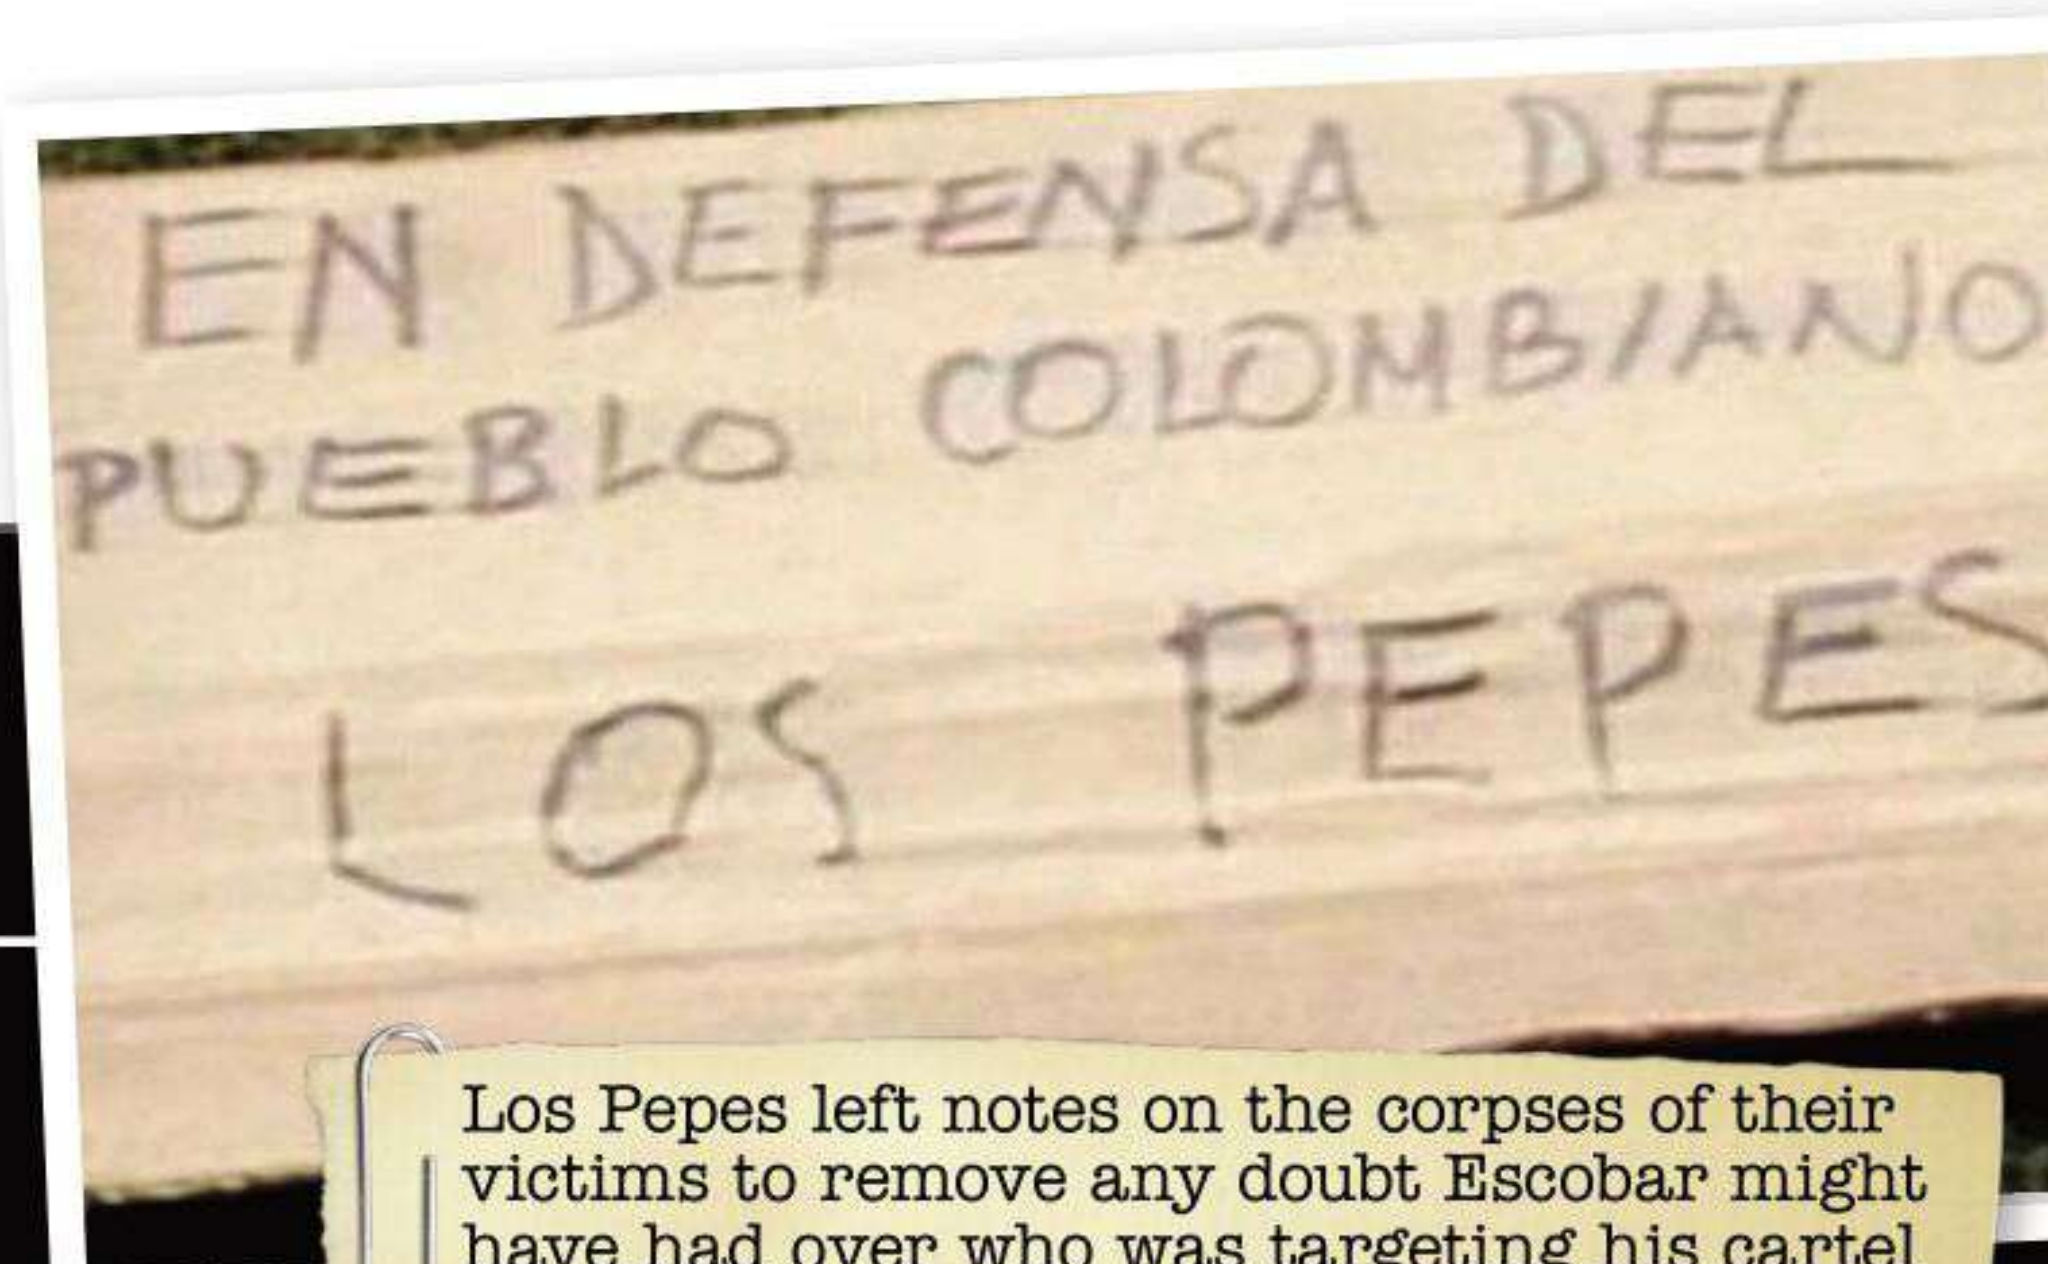 EN DEFENSA DEL
PUEBLO COLOMBIANO
LOS PEPES
Los Pepes left notes on the corpses of their
victims to remove any doubt Escobar might
have had over who was targeting his cartel